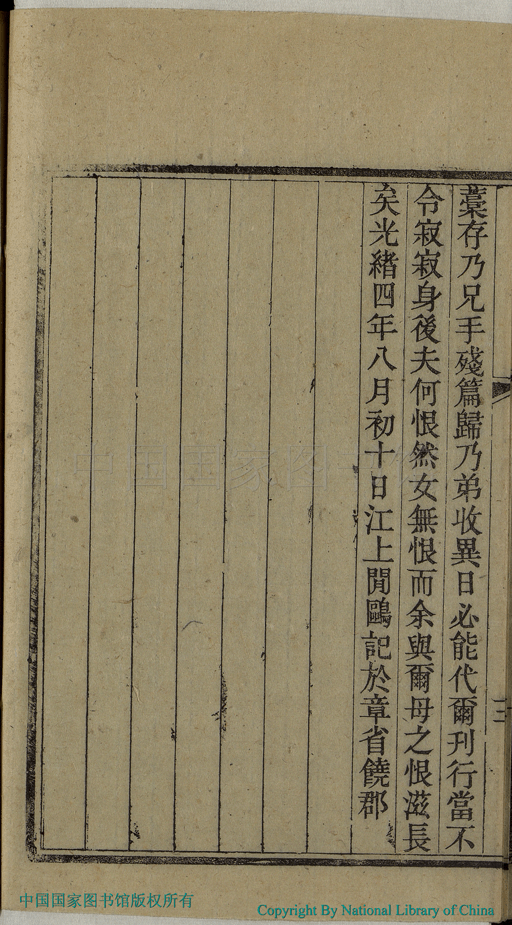 藁存乃兄手殘篇歸乃弟收異日必能代爾刊行當不
令寂寂身後夫何恨然女無恨而余與爾母之恨滋長
矣光緒四年八月初十日江上閒鷗記於章省饒郡
三
中国国家图书馆版权所有
Copyright By National Library of China